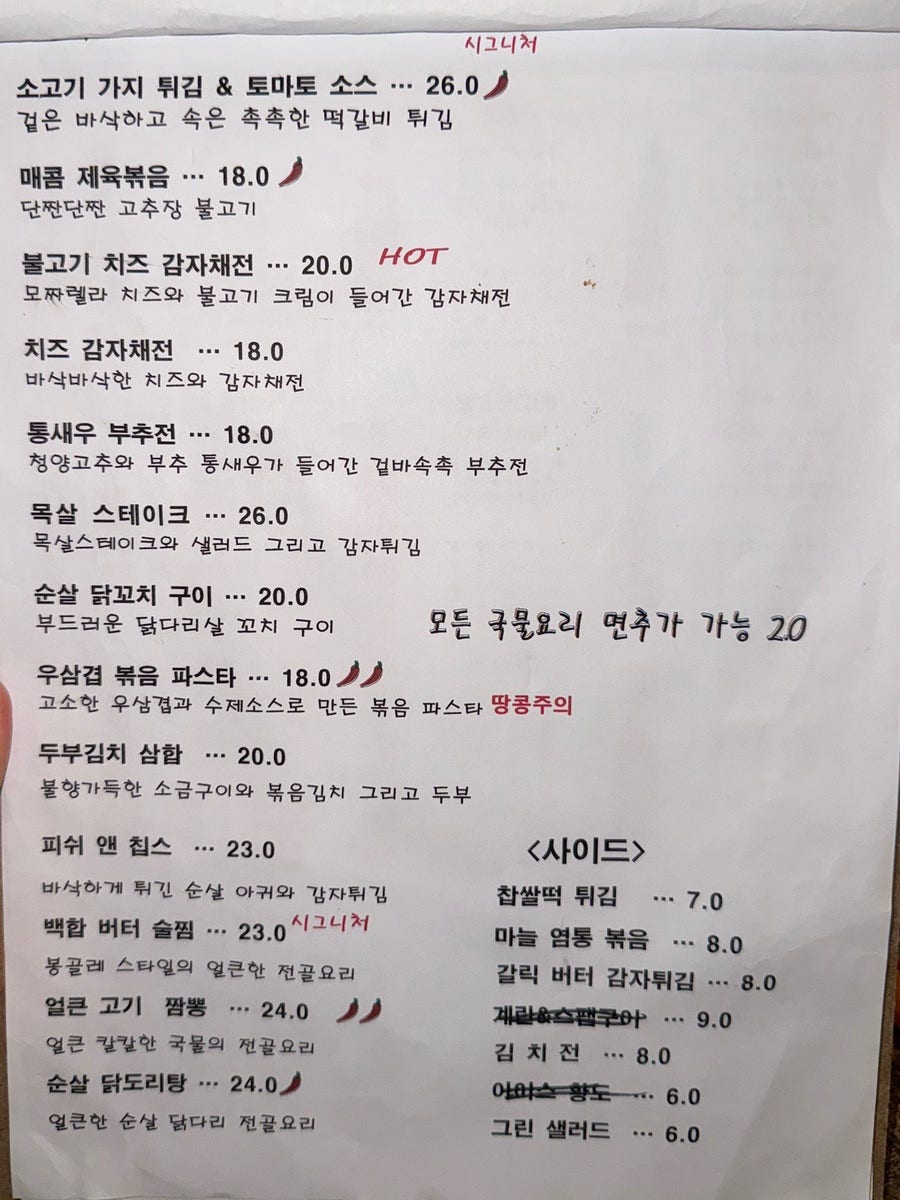 시그니처
소고기 가지 튀김 & 토마토 소스 ··· 26.0
겉은 바삭하고 속은 촉촉한 떡갈비 튀김
매콤 제육볶음 ··· 18.0
단짠단짠 고추장 불고기
불고기 치즈 감자채전 ··· 20.0 HOT
모짜렐라 치즈와 불고기 크림이 들어간 감자채전
치즈 감자채전 ··· 18.0
바삭바삭한 치즈와 감자채전
통새우 부추전 ··· 18.0
청양고추와 부추 통새우가 들어간 겉바속촉 부추전
목살 스테이크 ··· 26.0
목살스테이크와 샐러드 그리고 감자튀김
순살 닭꼬치 구이 ··· 20.0
부드러운 닭다리살 꼬치 구이
모든 국물요리 면추가 가능 2.0
우삼겹 볶음 파스타 ··· 18.0
고소한 우삼겹과 수제소스로 만든 볶음 파스타 땅콩주의
두부김치 삼합 ··· 20.0
불향가득한 소금구이와 볶음김치 그리고 두부
피쉬 앤 칩스 ··· 23.0
바삭하게 튀긴 순살 아귀와 감자튀김
백합 버터 술찜 ··· 23.0 시그니처
봉골레 스타일의 얼큰한 전골요리
얼큰 고기 짬뽕 ··· 24.0
얼큰 칼칼한 국물의 전골요리
순살 닭도리탕 ··· 24.0
얼큰한 순살 닭다리 전골요리
<사이드>
찹쌀떡 튀김 ··· 7.0
마늘 염통 볶음 ··· 8.0
갈릭 버터 감자튀김 ··· 8.0
계란&스팸구이 ··· 9.0
김 치 전 ··· 8.0
아이스 황도 ··· 6.0
그린 샐러드 ··· 6.0